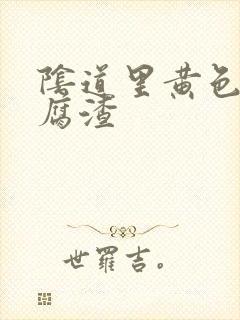 陰道里黄色
腐渣
世羅吉。